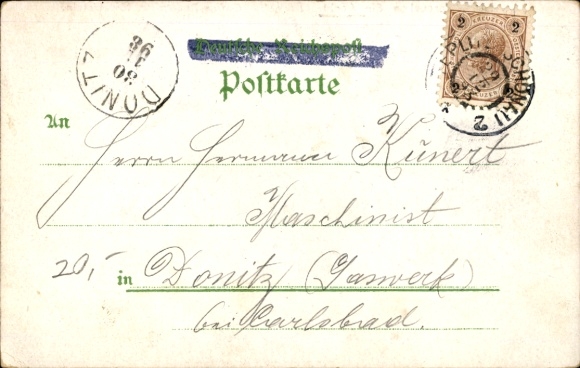 Deutsche Reichspost
Postkarte
An
Herrn Hermann Kunert
Maschinist
20,-
in Donitz (Gaswerk)
bei Carlsbad.
DONITZ
98
30
2 KREUZER 2
2 2
TEPLITZ SCHÖNAU
2